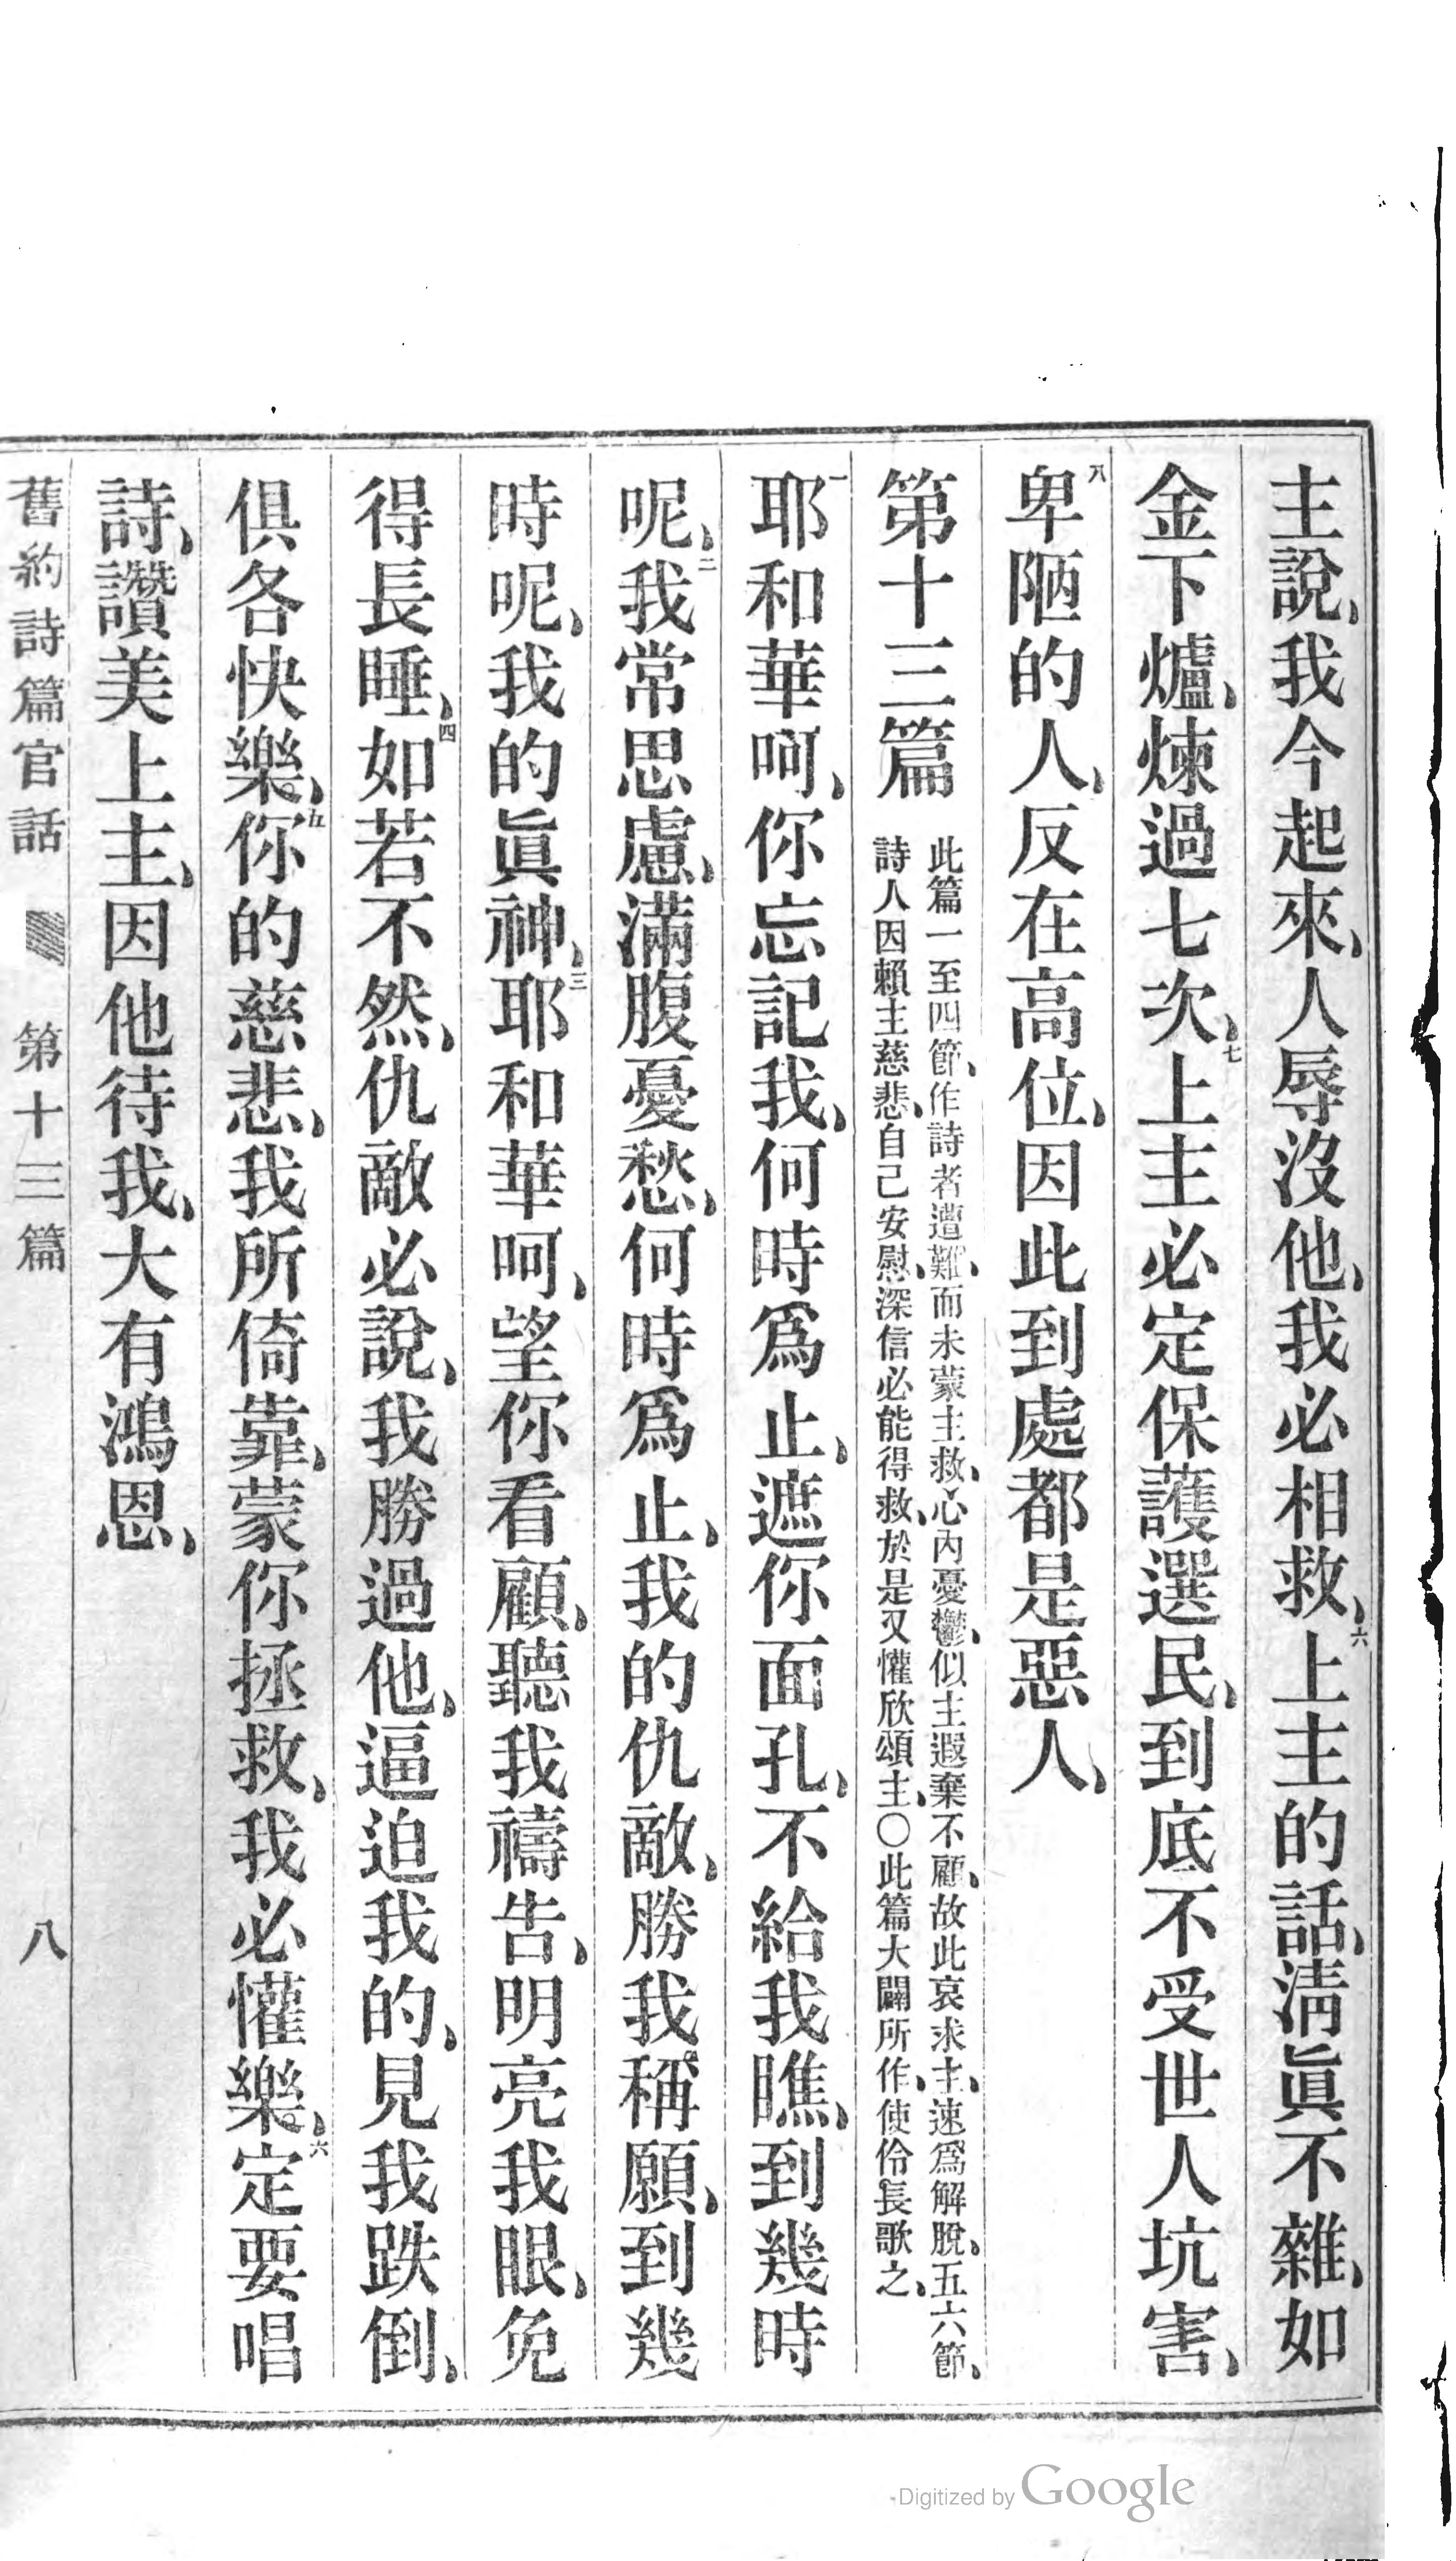 主說、我今起來、人辱沒他、我必相救、六上主的話、淸眞不雜、如
金下爐、煉過七次、七上主必定保護選民、到底不受世人坑害、
八卑陋的人、反在高位、因此到處都是惡人、
第十三篇
此篇一至四節、作詩者遭難、而未蒙主救、心內憂鬱、似主遐棄不顧、故此哀求主、速爲解脫、五六節、
詩人因賴主慈悲、自己安慰、深信必能得救、於是又懽欣頌主、○此篇大闢所作、使伶長歌之、
一耶和華呵、你忘記我、何時爲止、遮你面孔、不給我瞧、到幾時
呢、二我常思慮、滿腹憂愁、何時爲止、我的仇敵、勝我稱願、到幾
時呢、我的眞神、三耶和華呵、望你看顧、聽我禱告、明亮我眼、免
得長睡、四如若不然、仇敵必說、我勝過他、逼迫我的、見我跌倒、
俱各快樂、五你的慈悲、我所倚靠、蒙你拯救、我必懽樂、六定要唱
詩、讚美上主、因他待我、大有鴻恩、
舊約詩篇官話 第十三篇 八
Digitized by Google